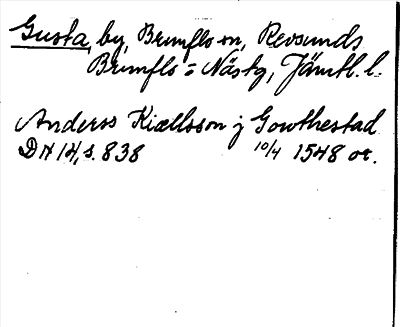 Gusta, by, Brunflo sn, Revsunds
Brunflo o Näskg, Jämtl. l.
Anderss Kiællsson j Gowthestad
DN 14, s. 838 10/4 1548 or.